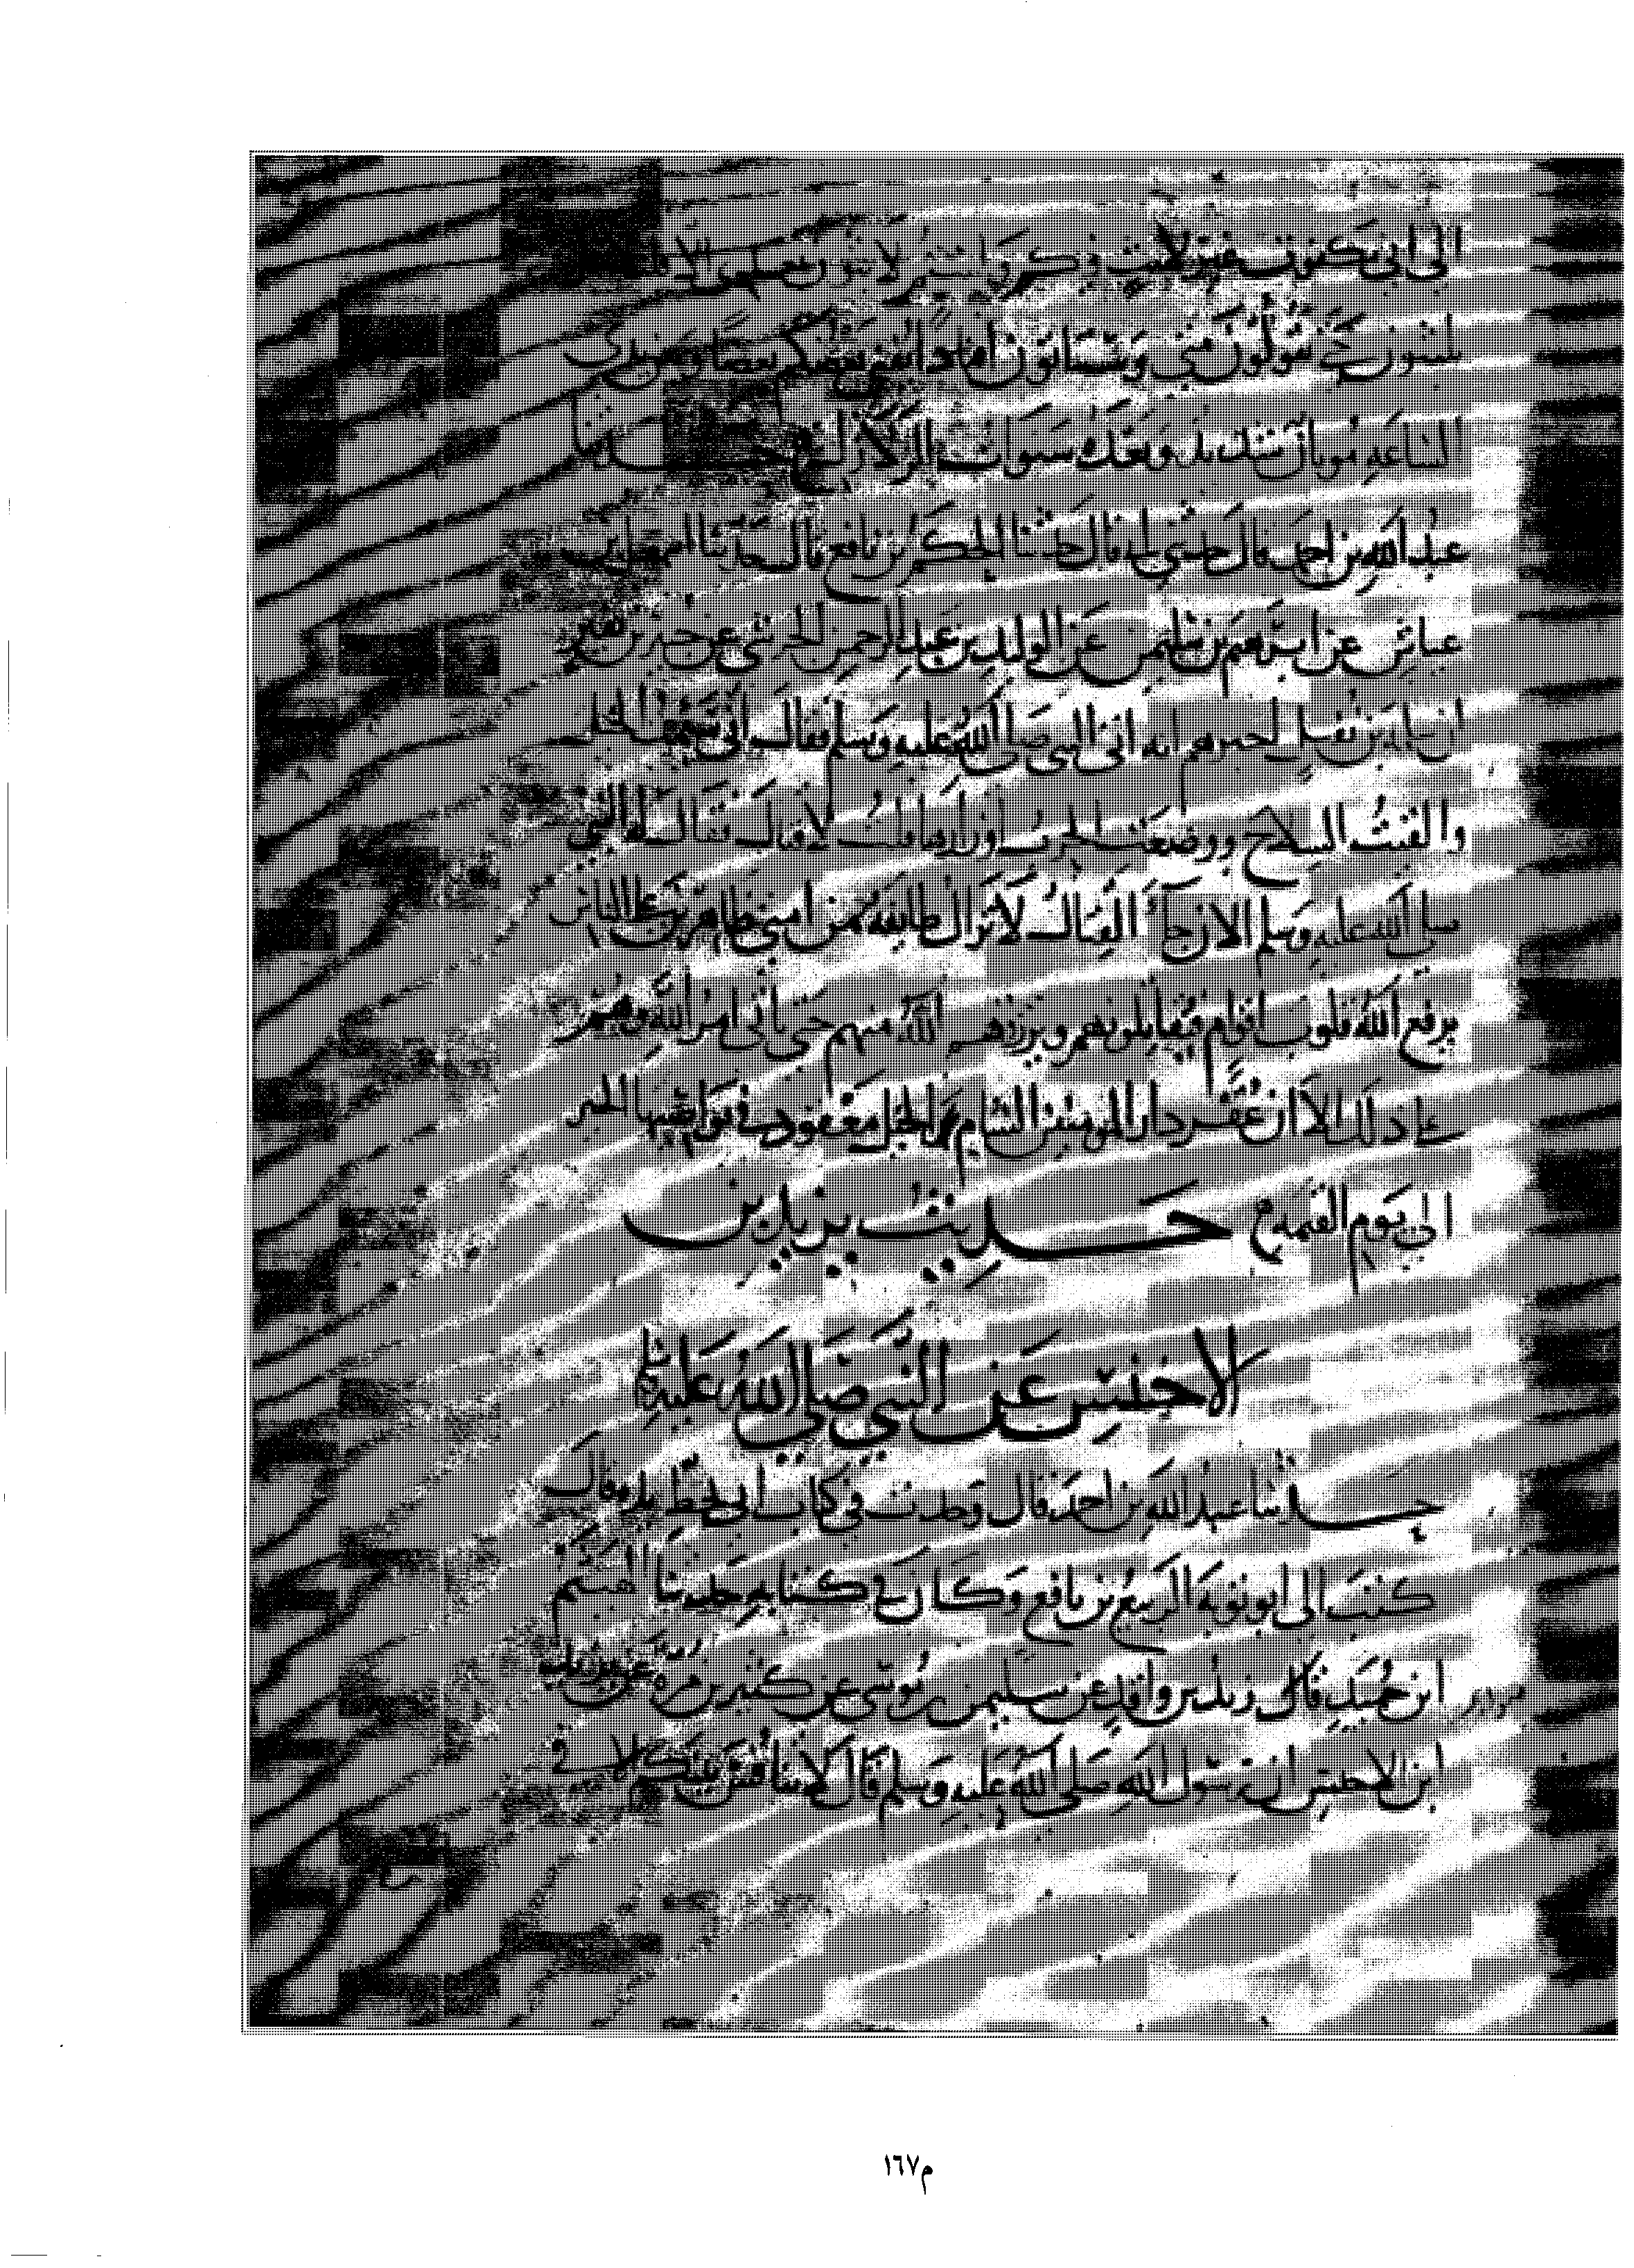 الى انى مكفوت غير لابث فيكم ولستم لابثون بعدى الا
تلبثون حتى تقولوا متى وستاتون افنادا يفنى بعضكم بعضا وبين يدى
الساعة موتان شديد وبعده سنوات الزلازل حدثنا
عبد الله بن احمد قال حدثنى ابى قال حدثنا الحكم بن نافع قال حدثنا اسمعيل بن
عياش عن ابرهيم بن سليمن عن الوليد بن عبد الرحمن الجرشى عن جبير بن نفير
ان سلمة بن نفيل اخبرهم انه اتى النبى صلى الله عليه وسلم فقال انى سيمت الخيل
والقيت السلاح ووضعت الحرب اوزارها قلت لا قتال فقال له النبى
صلى الله عليه وسلم الان جا القتال لا تزال طايفة من امتى ظاهرين على الناس
يرفع الله قلوب اقوام فيقاتلونهم ويرزقهم الله منهم حتى ياتى امر الله وهم
على ذلك الا ان عقر دار المومنين الشام والخيل معقود فى نواصيها الخير
الى يوم القيمة حديث يزيد بن
الاخنس عن النبى صلى الله عليه
حدثنا عبد الله بن احمد قال وجدت فى كتاب ابى بخط يده قال
كتب الى ابو توبة الربيع بن نافع وكان فى كتابه حدثنا الهيثم
ابن حميد عن زيد بن واقد عن سليمن بن موسى عن كثير بن مرة عن يزيد
ابن الاخنس ان رسول الله صلى الله عليه وسلم قال لا تنافس بينكم الا فى
م١٦٧